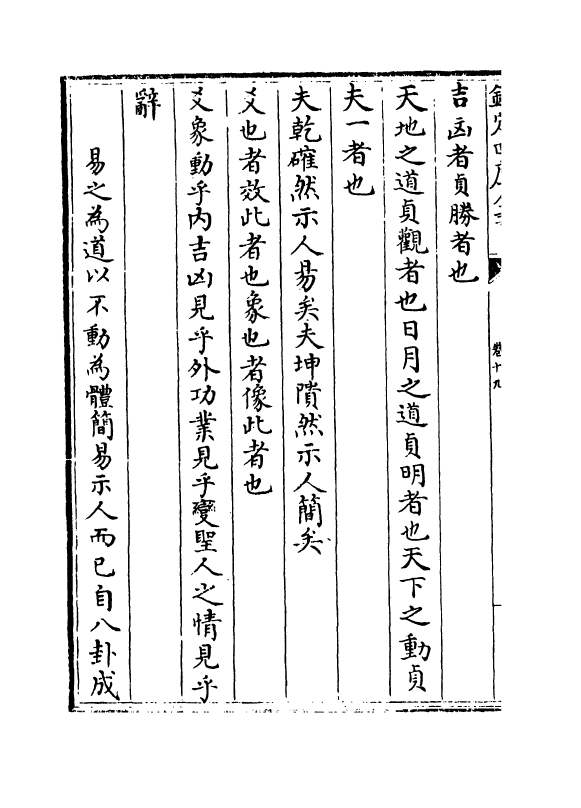 欽定四庫全
卷十九
吉凶者貞勝者也
天地之道貞觀者也日月之道貞明者也天下之動貞
夫一者也
夫乾確然示人易矣夫坤隤然示人簡矣
爻也者效此者也象也者像此者也
爻象動乎内吉凶見乎外功業見乎變聖人之情見乎
辭
易之為道以不動為體簡易示人而已自八卦成